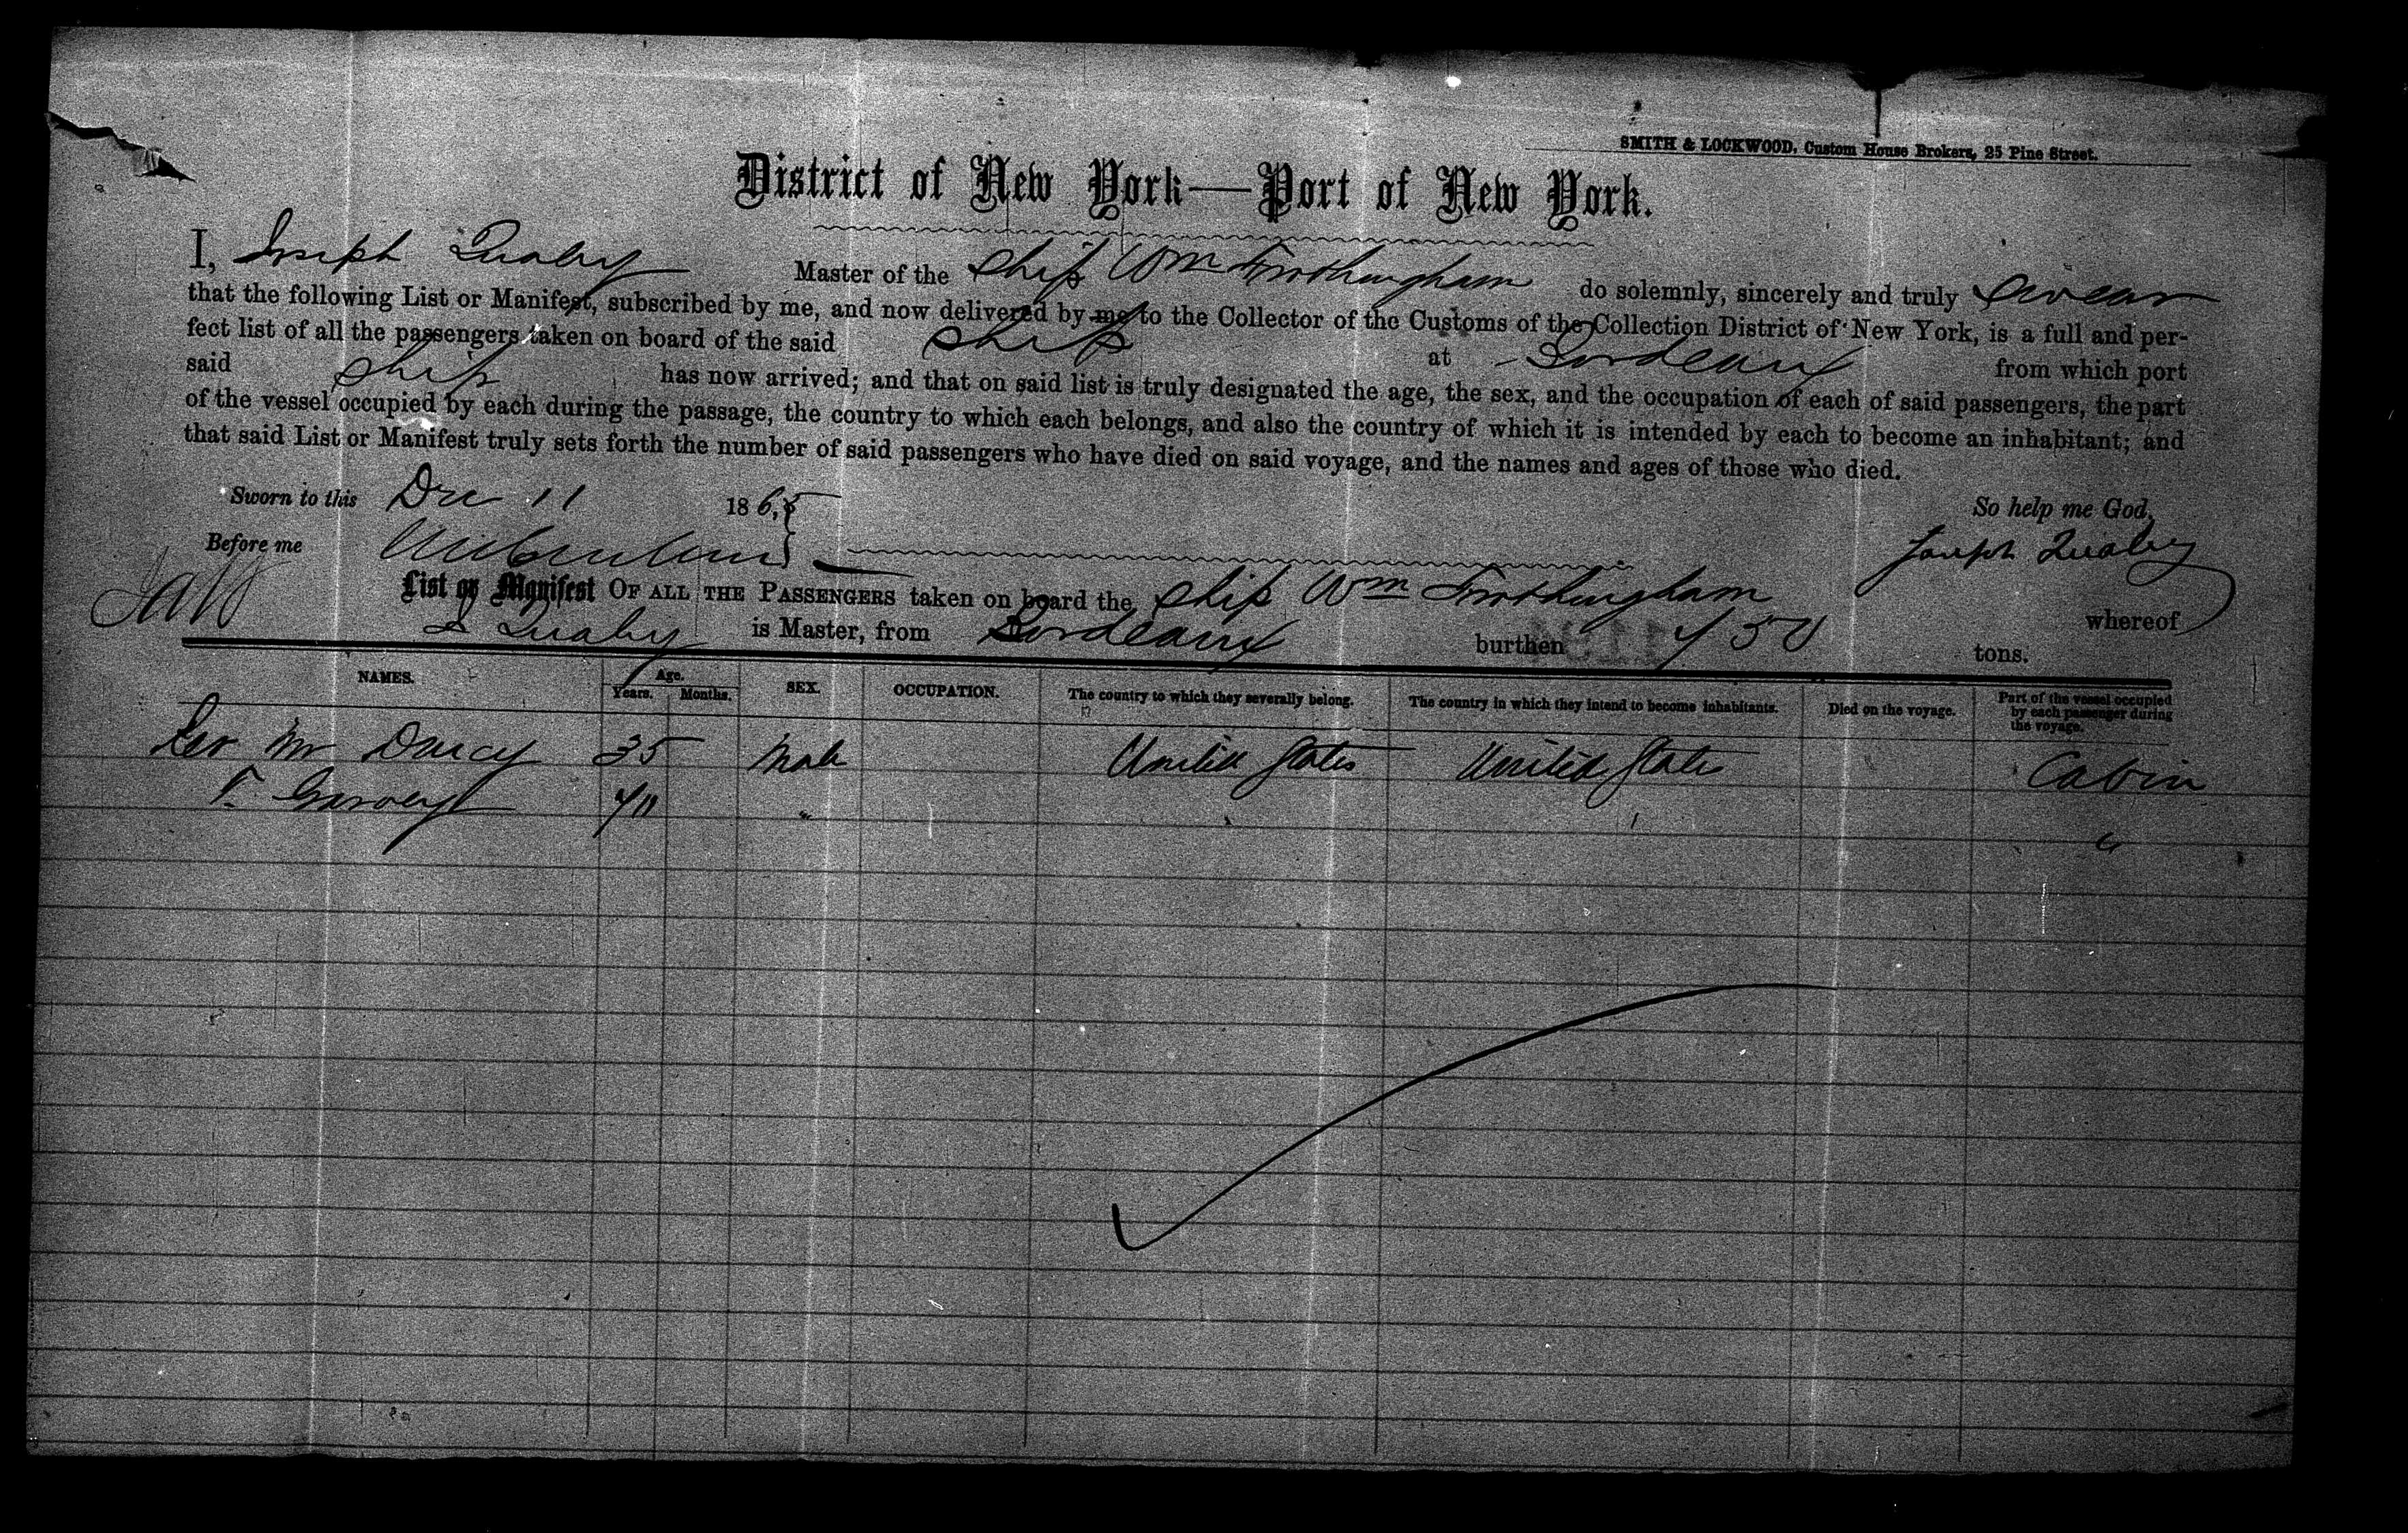 SMITH & LOCKWOOD, Custom House Brokers, 25 Pine Street.
District of New York—Port of New York.
I, Joseph Master of the Ship Wm Frothingham do solemnly, sincerely and truly swear
that the following List or Manifest, subscribed by me, and now delivered by me to the Collector of the Customs of the Collection District of New York, is a full and per-
fect list of all the passengers taken on board of the said Ship at Bordeaux from which port
said Ship has now arrived; and that on said list is truly designated the age, the sex, and the occupation of each of said passengers, the part
of the vessel occupied by each during the passage, the country to which each belongs, and also the country of which it is intended by each to become an inhabitant; and
that said List or Manifest truly sets forth the number of said passengers who have died on said voyage, and the names and ages of those who died.
Sworn to this Dec 11 1865 So help me God,
Before me Joseph
List or Manifest OF ALL THE PASSENGERS taken on board the Ship Wm Frothingham whereof
is Master, from Bordeaux burthen tons.
NAMES. Age. Years. Months. SEX. OCCUPATION. The country to which they severally belong. The country in which they intend to become inhabitants. Died on the voyage. Part of the vessel occupied by each passenger during the voyage.
Darcy 35 Male United States United States Cabin
" "